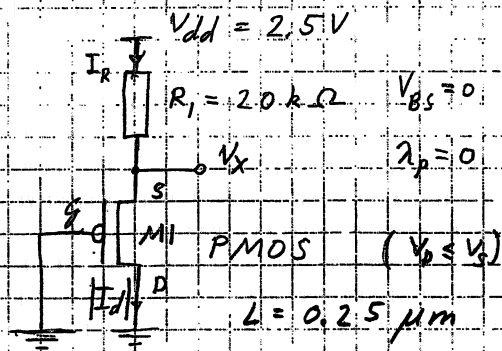 Vdd = 2,5V
I_R
R₁ = 20 kΩ
V_BS = 0
V_x
λ_p = 0
S
g
M1
PMOS
(V_D ≤ V_S)
|I_d|
D
L = 0.25 μm